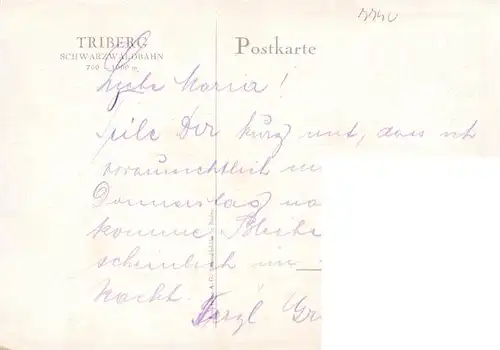 5540
TRIBERG
SCHWARZWALDBAHN
700 – 1000 m
Postkarte
Liebe Maria!
Teile Dir kurz mit, dass ich
voraussichtlich
Donnerstag
komme. Bleibe
scheinlich im
Nacht.